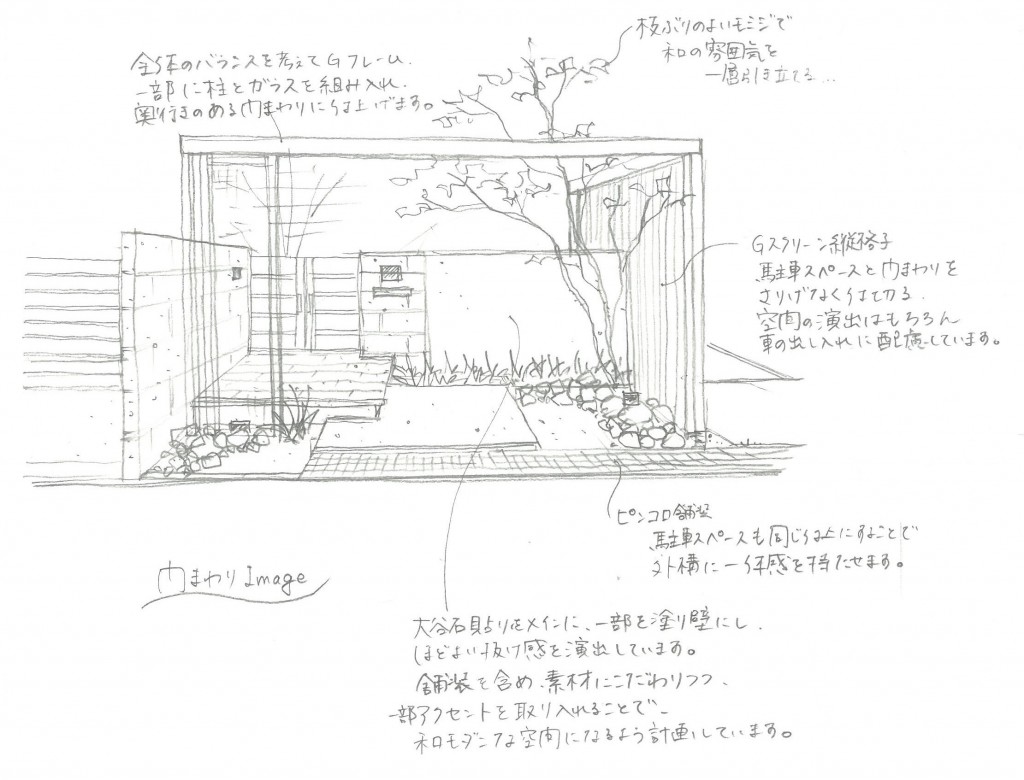 全体のバランスを考えてGフレーム
一部に柱とガラスを組み入れ.
奥行きのある門まわりに仕上げます。
枝ぶりのよいモミジで
和の雰囲気を
一層引き立てる...
Gスクリーン縦格子
駐車スペースと門まわりを
さりげなく仕切る.
空間の演出はもちろん
車の出し入れに配慮しています。
ピンコロ舗装
駐車スペースも同じ仕上にすることで
外構に一体感を持たせます。
門まわりImage
大谷石貼りをメインに、一部を塗り壁にし.
ほどよい抜け感を演出しています。
舗装も含め、素材にこだわりつつ、
一部アクセントを取り入れることで、
和モダンな空間になるよう計画しています。